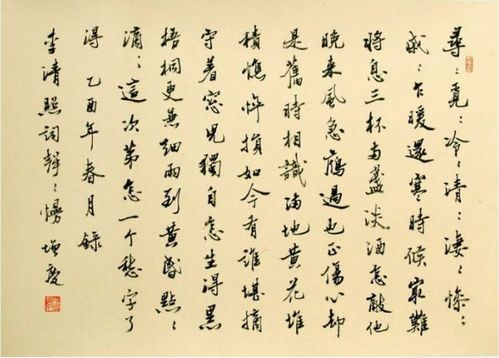 尋々覓々冷々清々淒々慘々
戚々乍暖還寒時候最難
將息三杯兩盞淡酒怎敵他
晚來風急鴈過也正傷心却
是舊時相識滿地黃花堆
積憔悴損如今有誰堪摘
守着窓兒獨自怎生得黑
梧桐更兼細雨到黃昏點々
滴々這次第怎一个愁字了
得 乙酉年春月錄
李清照詞聲々慢